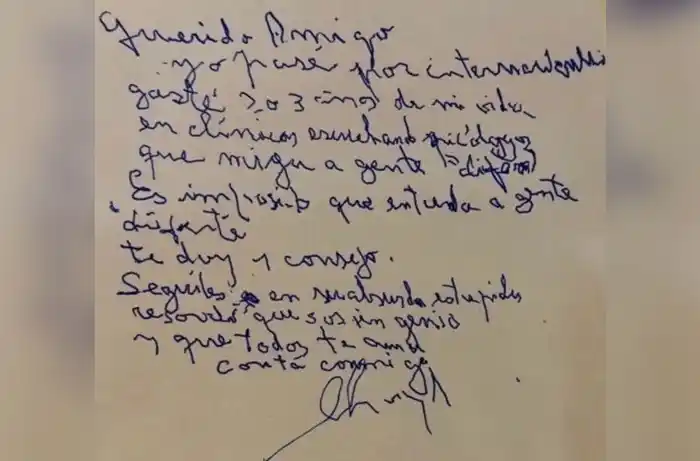 Querido Amigo
yo pasé por
gasté 2 o 3 años de mi vida
en clínicas escuchando psicólogos
que  a gente
Es imposible que entienda a gente
te doy 1 consejo.
Seguiles en su absurda estupidez
que sos un genio
y que todos te ama
contá conmigo